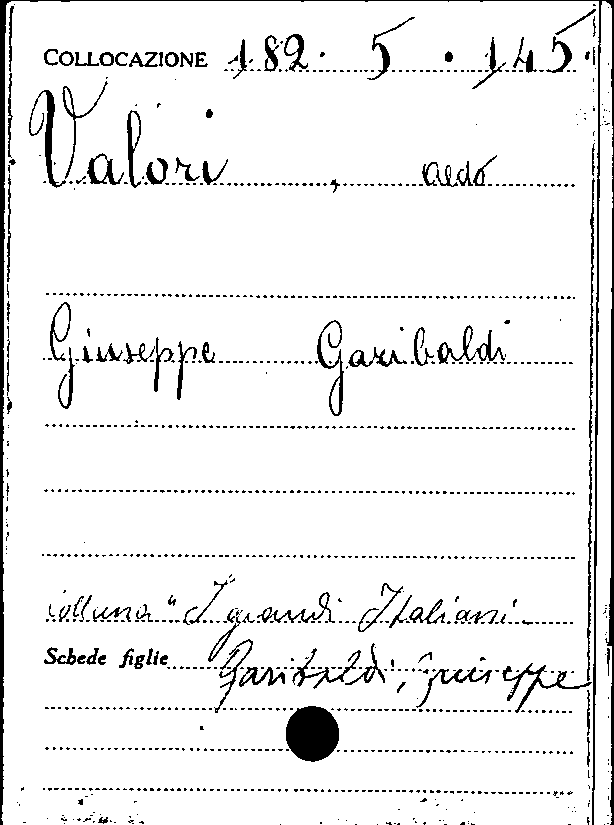 COLLOCAZIONE 182. 5 . 145.
Valori , Aldo
Giuseppe Garibaldi
collana "I grandi Italiani
Schede figlie Garibaldi, Giuseppe